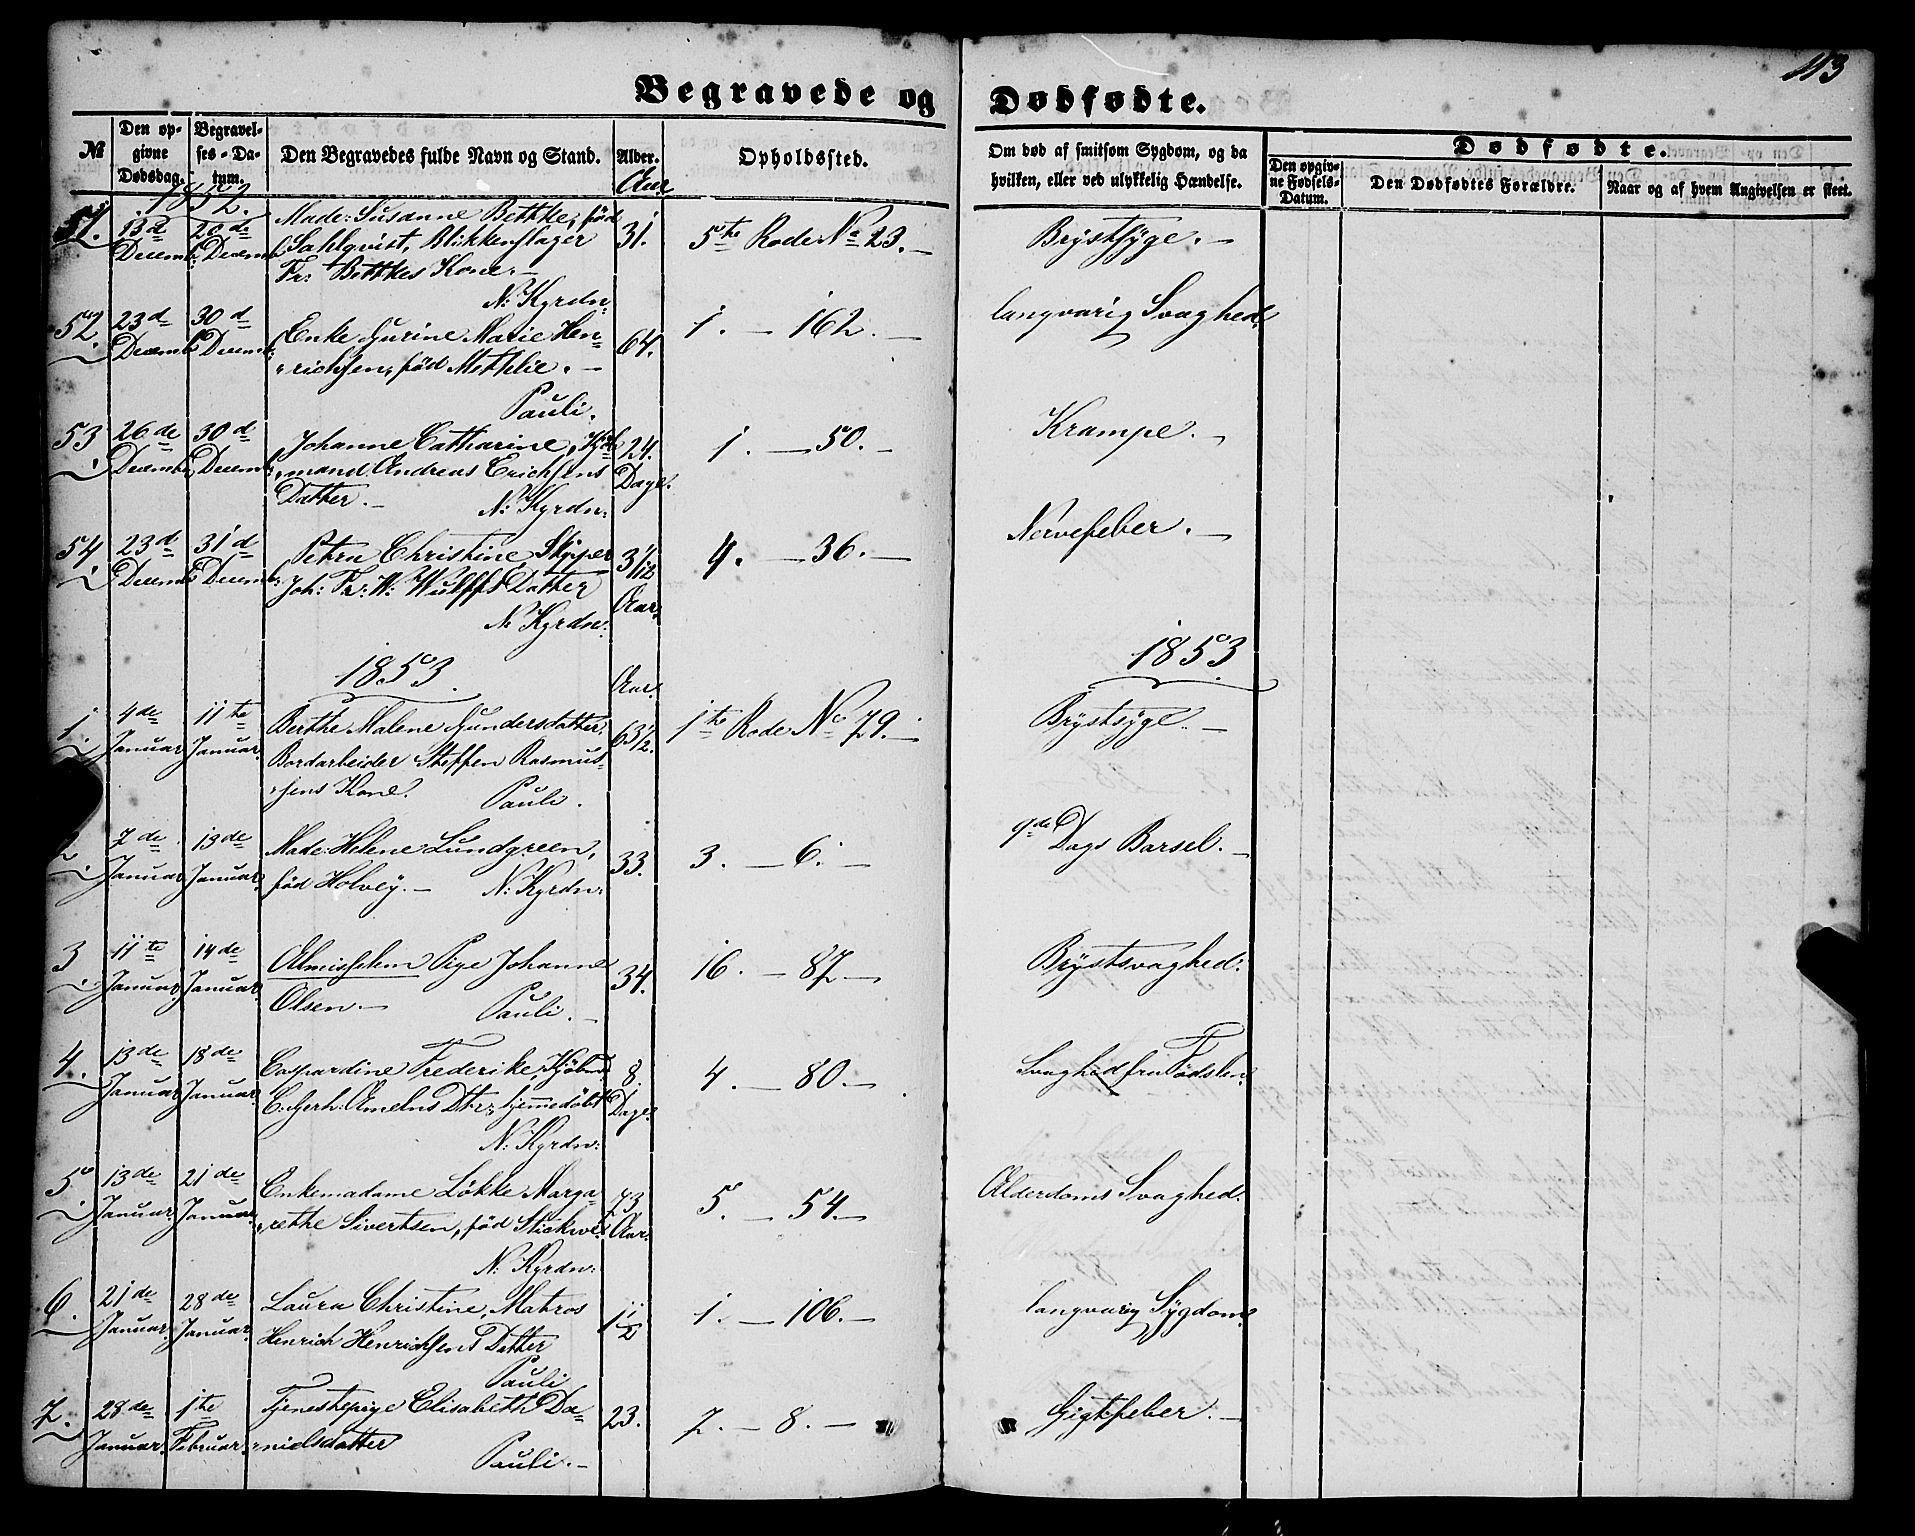 113
Begravede og Dødfødte.
№
Den opgivne Dødsdag.
Begravelses-Datum.
Den Begravedes fulde Navn og Stand.
Alder.
Opholdssted.
Om død af smitsom Sygdom, og da hvilken, eller ved ulykkelig Hændelse.
Dødfødte.
Den opgivne Fødsels-Datum.
Den Dødfødtes Forældre.
Naar og af hvem Angivelsen er skeet.
1852.
Aar
51. 13de Decemb: 20de Decemb: Made: Susanne Bethke, fød
Sahlqvist, Blikkenslager
Fr: Bethkes Kone.-
N: Kyrdn:
31. 5te Rode No 23.- Brystsyge.-
52. 23d Decemb: 30d Decemb: Enke Gurine Marie Hen=
richsen, fød Methlie.-
Pauli.
64. 1.- 162.- langvarig Svaghed.
53. 26de Decemb: 30d Decemb: Johanne Catharine, Kjøb=
mand Andreas Erichsens
Datter.- N: Kyrdn:
24. Dage. 1.- 50.- Krampe.-
54. 23d Decemb: 31d Decemb: Petra Christine, Skipper
Joh: Fr: W: Wulffs Datter
N: Kyrdn:
Aar. 4.- 36.- Nervefeber.-
1853. Aar. 1853.
1. 4de Januar. 11te Januar. Berthe Malene Gundersdatter,
Bordarbeider Steffen Rasmus=
sens Kone. Pauli.
63½. 1te Rode No 79.- Brystsyge.-
2. 7de Januar 13de Januar. Made: Helene Lundgreen,
fød Holvey.- N: Kyrdn:
33. 3.- 6.- 9de Dags Barsel.-
3. 11te Januar. 14de Januar. Almisselem Pige Johanne
Olsen.- Pauli.-
34. 16.- 87.- Brystsvaghed.
4. 13de Januar 18de Januar. Caspardine Frederike, Kjøbmd
C: Gerh: Amelns Dtr, hjemedøbt
N: Kyrdn:
8. Dage. 4.- 80.- Svaghed fra Fødslen.
5. 13de Januar. 21de Januar. Enkemadame Løkke Marga=
rethe Sivertsen, fød
N: Kyrdn:
73. Aar. 5.- 54.- Alderdoms Svaghed.
6. 21de Januar. 28de Januar. Laura Christine, Matros
Henrich Henrichsens Datter
Pauli
1½ 1.- 106.- langvarig Sygdom.
7. 28de Januar. 1te Februar. Tjenestepige Elisabeth Da=
nielsdatter
Pauli.-
23. 7.- 8.- Gigtfeber.-